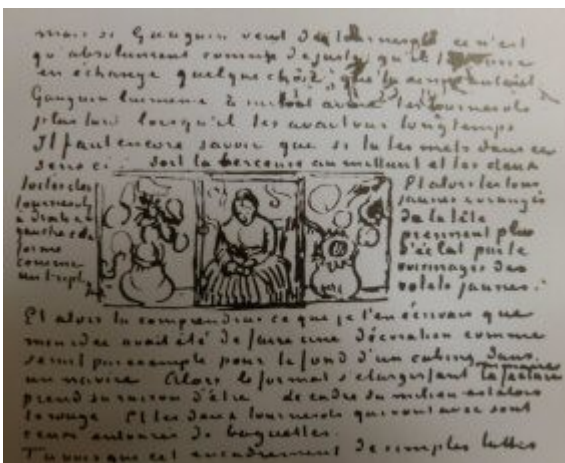 mais si Gauguin veut des tournesols ce n'est
qu'absolument comme de juste qu'il te donne
en échange quelque chose que tu aimes autant.
Gauguin lui même a surtout aimé les tournesols
plus tard lorsqu'il les avait vus longtemps
Il faut encore savoir que si tu les mets dans ce
sens ci: soit la berceuse au milieu et les deux
toiles des
tournesols
à droite &
gauche cela
forme
comme
un triptyque
Et alors les tons
jaunes & orangés
de la tête
prennent plus
d'éclat par le
voisinages des
volets jaunes.
Et alors tu comprendras ce que je t'en écrivais que
mon idée avait été de faire une décoration comme
serait par exemple pour le fond d'un cabine dans
un navire Alors le format s'élargissant la facture
prend sa raison d'être. Le cadre du milieu est alors
le rouge Et les deux tournesols qui vont avec sont
ceux entourés de baguettes.
Tu vois que cet encadrement de simples lattes